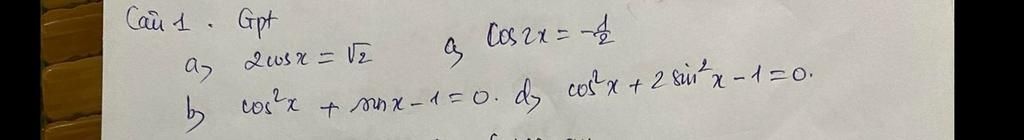 Câu 1. Gpt
a, 2cosx = √2 c, Cos2x = -1/2
b, cos²x + sinx - 1 = 0. d, cos²x + 2 sin²x - 1 = 0.